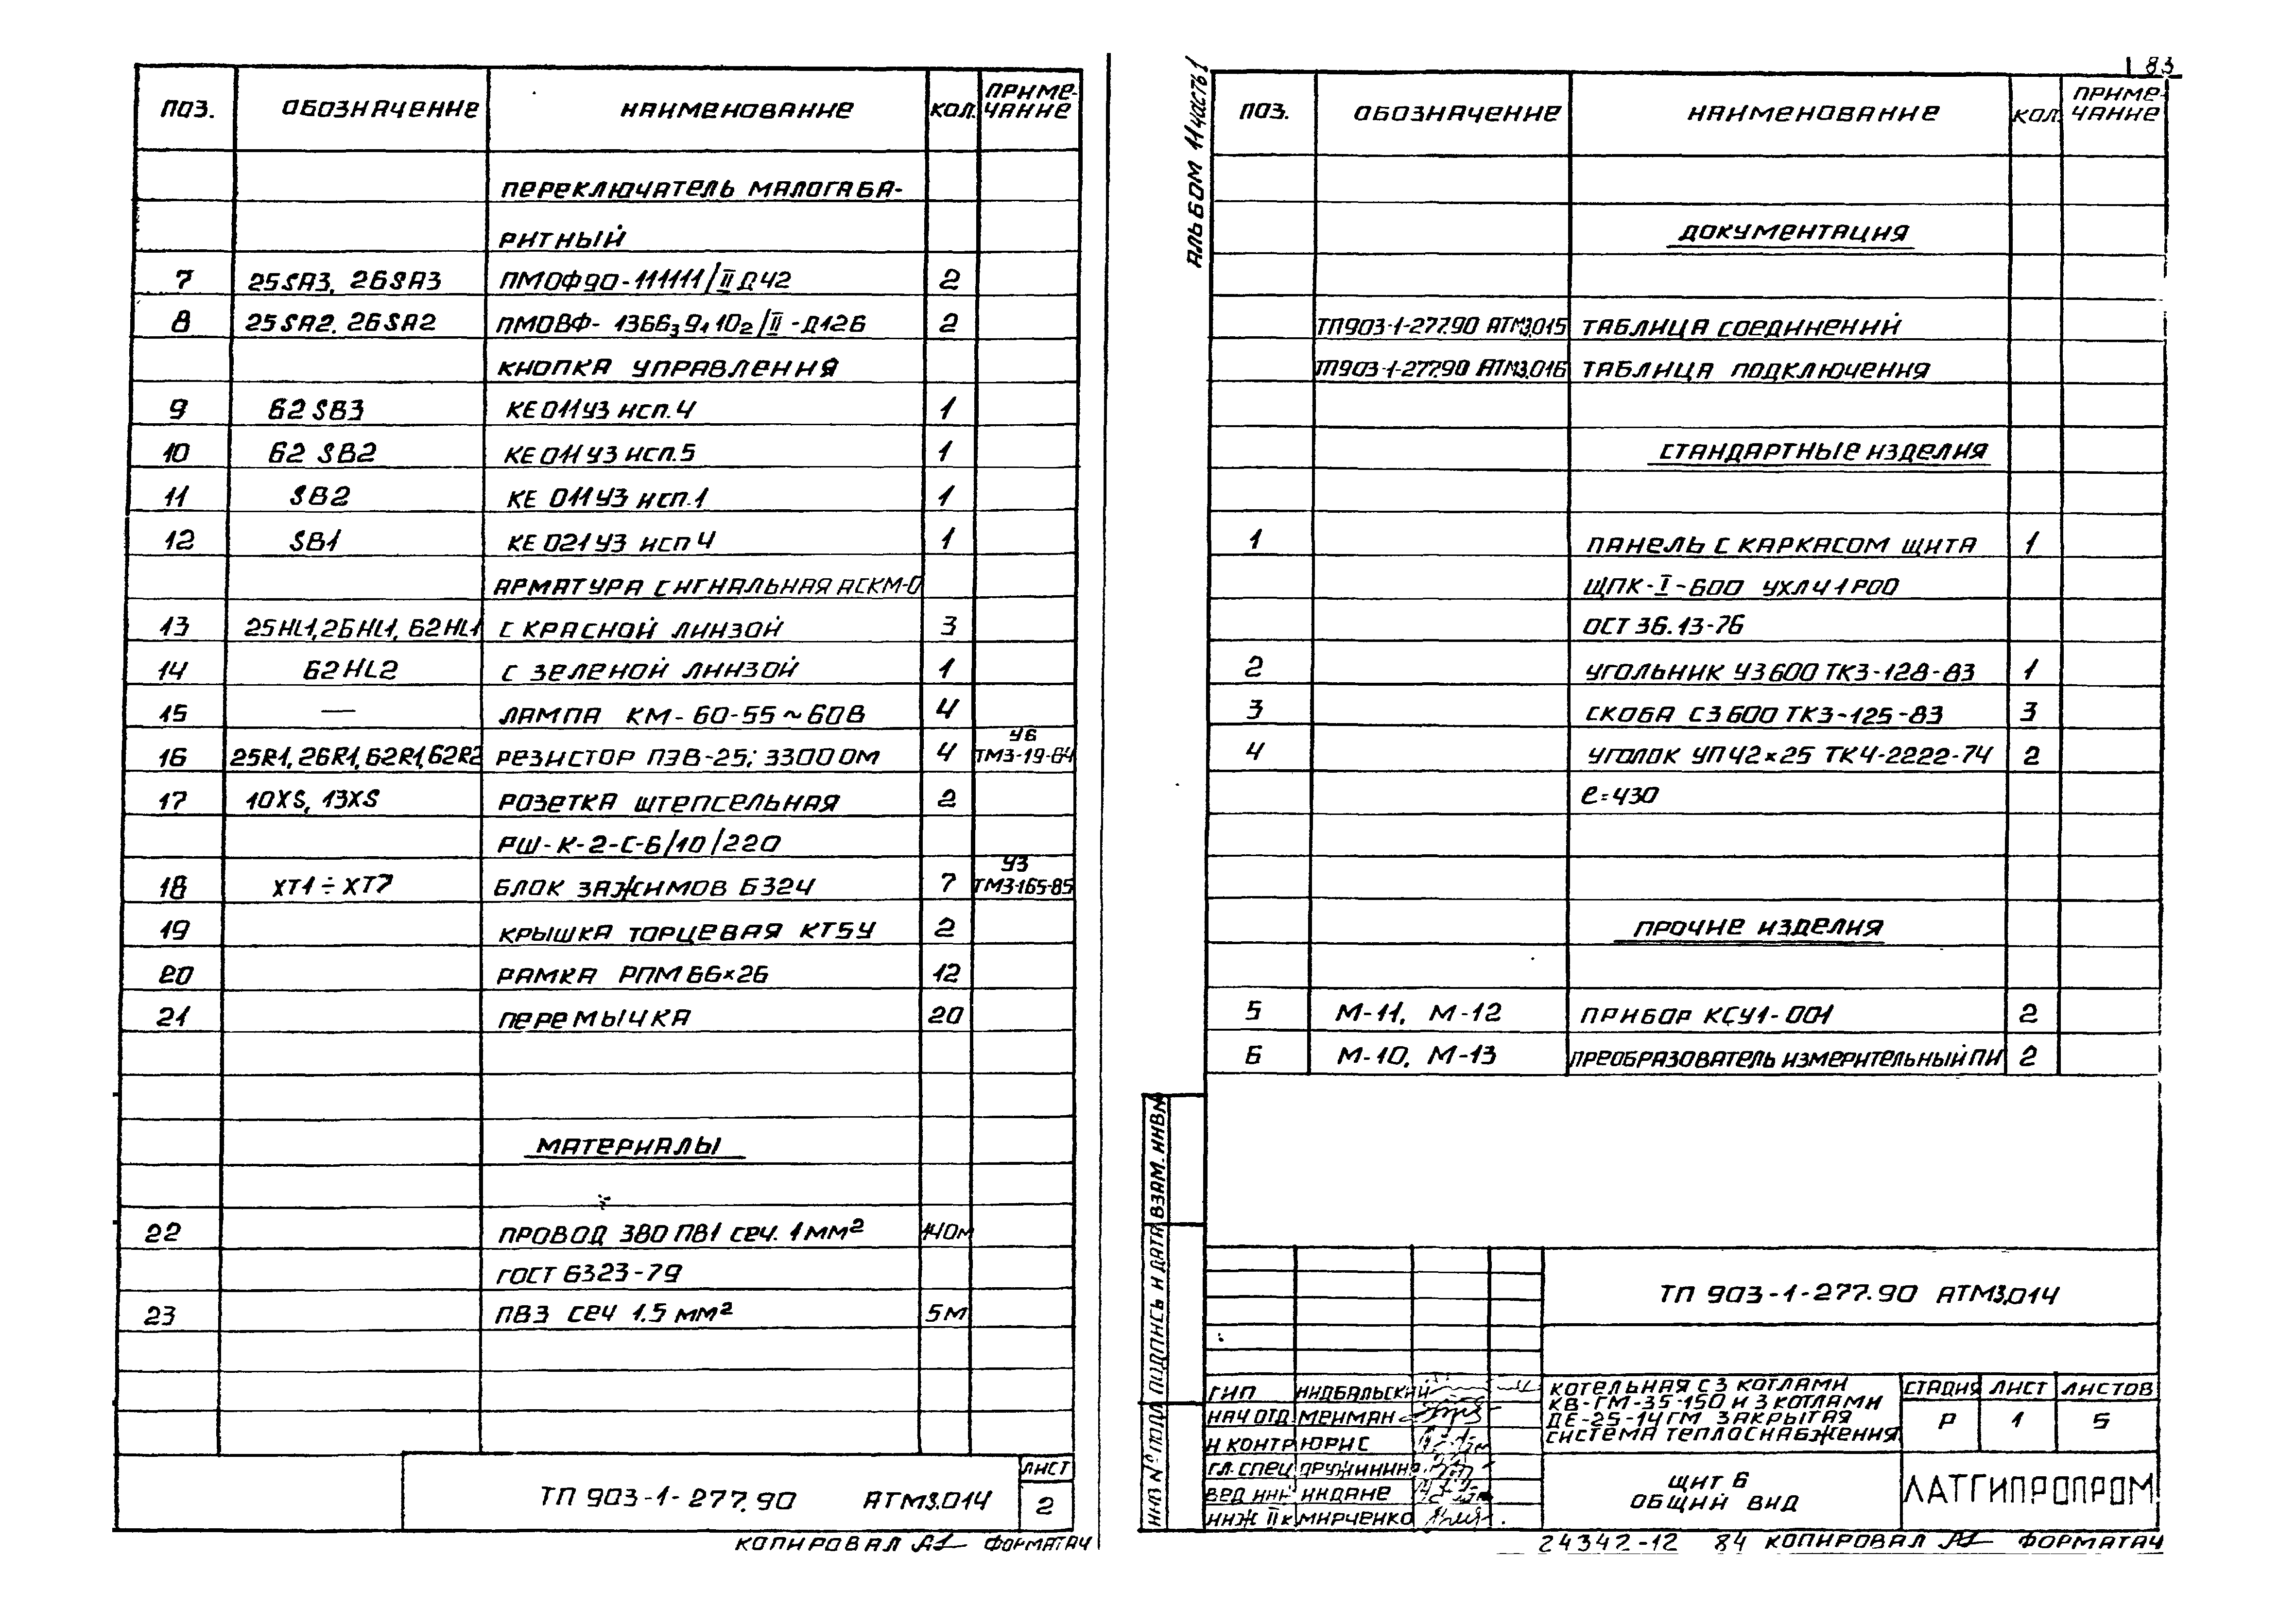 ПОЗ. ОБОЗНАЧЕНИЕ НАИМЕНОВАНИЕ КОЛ. ПРИМЕ-
ЧАНИЕ
ПЕРЕКЛЮЧАТЕЛЬ МАЛОГАБА-
РИТНЫЙ
7 25SA3, 26SA3 ПМОФ90-111111/II Д42 2
8 25SA2. 26SA2 ПМОВФ- 1366₃9₁10₂/II-Д126 2
КНОПКА УПРАВЛЕНИЯ
9 62SB3 КЕ 011У3 исп. 4 1
10 62 SB2 КЕ 011 У3 исп. 5 1
11 SB2 КЕ 011У3 исп. 1 1
12 SB1 КЕ 021У3 исп 4 1
АРМАТУРА СИГНАЛЬНАЯ АСКМ-0
13 25HL1, 26HL1, 62HL1 С КРАСНОЙ ЛИНЗОЙ 3
14 62HL2 С ЗЕЛЕНОЙ ЛИНЗОЙ 1
15 — ЛАМПА КМ- 60-55 ~ 60В 4
16 25R1, 26R1, 62R1, 62R2 РЕЗИСТОР ПЭВ-25; 3300 ОМ 4 У6
ТМ3-19-84
17 10XS, 13XS РОЗЕТКА ШТЕПСЕЛЬНАЯ 2
РШ-К-2-С-6/10/220
18 XT1 ÷ XT7 БЛОК ЗАЖИМОВ Б324 7 У3
ТМ3-165-85
19 КРЫШКА ТОРЦЕВАЯ КТ5У 2
20 РАМКА РПМ 66×26 12
21 ПЕРЕМЫЧКА 20
МАТЕРИАЛЫ
22 ПРОВОД 380 ПВ1 сеч. 1 мм² 140м
ГОСТ 6323-79
23 ПВ3 сеч 1.5 мм² 5м
ТП 903-1-277.90 АТМ3.014
ЛИСТ
2
КОПИРОВАЛ ФОРМАТ А4
83
АЛЬБОМ 11 часть 1
ПОЗ. ОБОЗНАЧЕНИЕ НАИМЕНОВАНИЕ КОЛ. ПРИМЕ-
ЧАНИЕ
ДОКУМЕНТАЦИЯ
ТП903-1-277.90 АТМ3.015 ТАБЛИЦА СОЕДИНЕНИЙ
ТП903-1-277.90 АТМ3.016 ТАБЛИЦА ПОДКЛЮЧЕНИЯ
СТАНДАРТНЫЕ ИЗДЕЛИЯ
1 ПАНЕЛЬ С КАРКАСОМ ЩИТА 1
ЩПК-I-600 УХЛ4 1Р00
ОСТ 36.13-76
2 УГОЛЬНИК У3600 ТК3-128-83 1
3 СКОБА С3600 ТК3-125-83 3
4 УГОЛОК УП42×25 ТК4-2222-74 2
ℓ=430
ПРОЧИЕ ИЗДЕЛИЯ
5 М-11, М-12 ПРИБОР КСУ1-001 2
6 М-10, М-13 ПРЕОБРАЗОВАТЕЛЬ ИЗМЕРИТЕЛЬНЫЙ ПИ 2
ИНВ № ПОДЛ ПОДПИСЬ И ДАТА ВЗАМ. ИНВ №
ТП 903-1-277.90 АТМ3.014
ГИП НИДБАЛЬСКИЙ
НАЧ ОТД МЕИМАН
Н КОНТР ЮРИС
ГЛ. СПЕЦ ПРУЖИНИНА
ВЕД ИНЖ ИКДАНЕ
ИНЖ II к МИРЧЕНКО
КОТЕЛЬНАЯ С 3 КОТЛАМИ
КВ-ГМ-35-150 И 3 КОТЛАМИ
ДЕ-25-14ГМ ЗАКРЫТАЯ
СИСТЕМА ТЕПЛОСНАБЖЕНИЯ
СТАДИЯ ЛИСТ ЛИСТОВ
Р 1 5
ЩИТ 6
ОБЩИЙ ВИД
ЛАТГИПРОПРОМ
24342-12 84 КОПИРОВАЛ ФОРМАТ А4